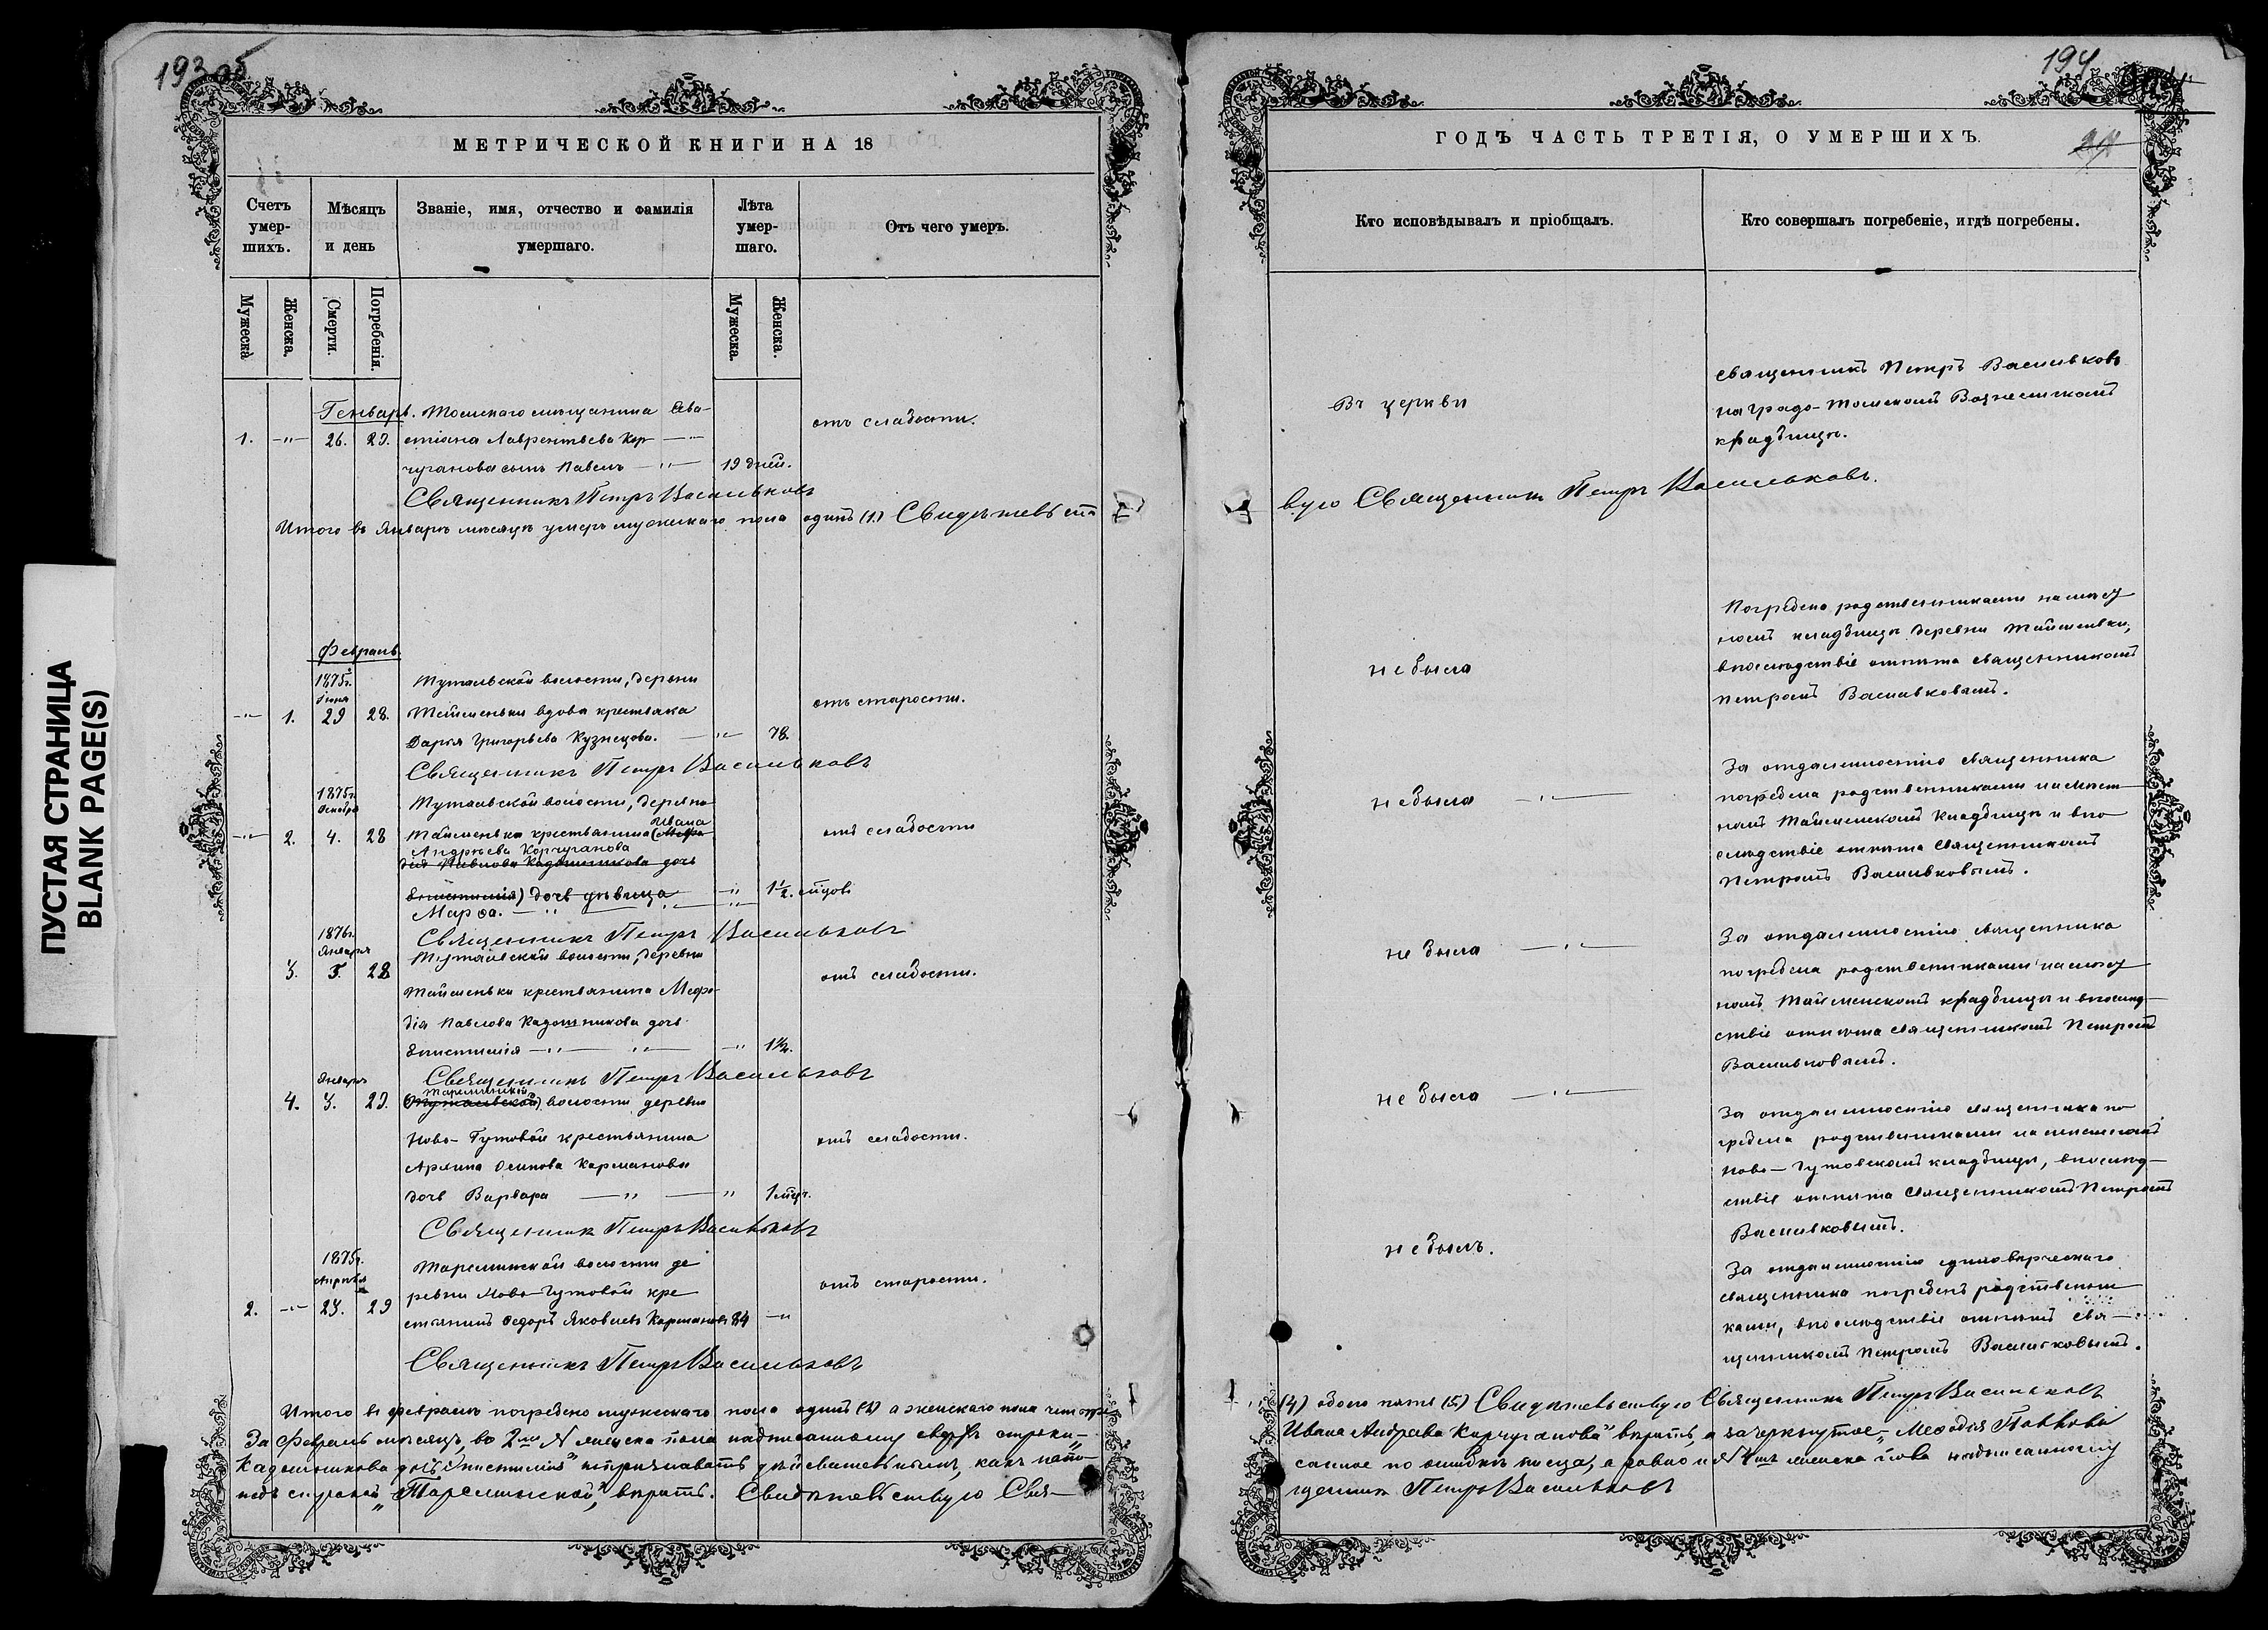 193
194
ПУСТАЯ СТРАНИЦА
BLANK PAGE(S)
МЕТРИЧЕСКОЙ КНИГИ НА 18
Счетъ умер-шихъ.
Мѣсяцъ и день
Званіе, имя, отчество и фамилія умершаго.
Лѣта умер-шаго.
Отъ чего умеръ.
Мужеска
Женска.
Смерти.
Погребенія.
Мужеска.
Женска.
Генварь. Томскаго мѣщанина Сева-
1. -"- 26. 29. стіана Лаврентьева Кор-
чуганова сынъ Павелъ -"- 19 дней.
отъ слабости.
Священникъ Петръ Васильковъ
Итого въ Январѣ мѣсяцѣ умеръ мужескаго пола одинъ (1.) Свидѣтельст
Февраль.
1875г. Тутальской волости, деревни
Іюня
-"- 1. 29 28. Тайменьки вдова крестьянка
Дарья Григорьева Кузнецова. -"- 78.
отъ старости.
Священникъ Петръ Васильковъ
1875г.
Декабря Тутальской волости, деревни
Ивана
-"- 2. 4. 28 Тайменьки крестьянина (Мефо-
Андрѣева Корчуганова
дія Павлова Кадошникова дочь
) дочь дѣвица -"- 1½. мѣсяцовъ
Марѳа. -"-
отъ слабости
Священникъ Петръ Васильковъ
1876г.
Января Тутальской волости, деревни
3. 5. 28
Тайменьки крестьянина Мефо-
дія Павлова Кадошникова дочь
-"- -"- 1½.
отъ слабости.
Священникъ Петръ Васильковъ
Января Тарсминской
4. 3. 29. (Тутальской) волости деревни
Ново-Гутовой крестьянина
Осипова Карманова
дочь Варвара -"- -"- 1 мѣс.
отъ слабости.
Священникъ Петръ Васильковъ
1875г. Тарсминской волости де
Апрѣля ревни Ново-Гутовой кре
2. -"- 23. 29 стьянинъ Ѳедоръ Яковлевъ Кармановъ 84 -"
отъ старости.
Священникъ Петръ Васильковъ
Итого въ февралѣ погребено мужескаго пола одинъ (1) а женскаго пола четыре
За Февраль мѣсяцъ, во 2мъ № женска пола надписанному сверхъ строки
Кадошникова дочь не признавать дѣйствительнымъ, какъ напи-
надъ строкой „Тарсминской“, вѣрить. Свидѣтельствую Свя-
ГОДЪ ЧАСТЬ ТРЕТІЯ, О УМЕРШИХЪ.
Кто исповѣдывалъ и пріобщалъ.
Кто совершалъ погребеніе, и гдѣ погребены.
Въ церкви
Священникъ Петръ Васильковъ
на Градо-Томскомъ Вознесенскомъ
кладбищѣ.
вую Священникъ Петръ Васильковъ.
не была
Погребена родственниками на мѣст
номъ кладбищѣ деревни Тайменьки,
впослѣдствіе отпѣта священникомъ
Петромъ Васильковымъ.
не была -"-
За отдаленностію священника
погребена родственниками на мѣст
номъ Тайменскомъ кладбищѣ и впо
слѣдствіе отпѣта священникомъ
Петромъ Васильковымъ.
не была -"-
За отдаленностію священника
погребена родственниками на мѣст
номъ Тайменскомъ кладбищѣ и впослѣд-
ствіе отпѣта священникомъ Петромъ
Васильковымъ.
не была -"-
За отдаленностію священника по
гребена родственниками на мѣстномъ
Ново-Гутовскомъ кладбищѣ, впослѣд-
ствіе отпѣта священникомъ Петромъ
Васильковымъ.
не былъ.
За отдаленностію единовѣрческаго
священника погребенъ родственни
ками, впослѣдствіе отпѣтъ свя-
щенникомъ Петромъ Васильковымъ.
(4) обоего пяти (5.) Свидѣтельствую Священникъ Петръ Васильковъ
Ивана Андрѣева Корчуганова“ вѣрить, а зачеркнутое „Меѳодія Павлова
санное по ошибкѣ писца, а равно и въ № 4мъ женска пола надписанному
щенникъ Петръ Васильковъ